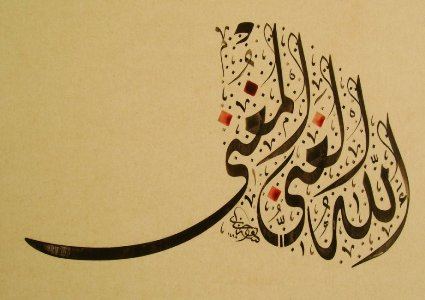 الله الغنى المغنى